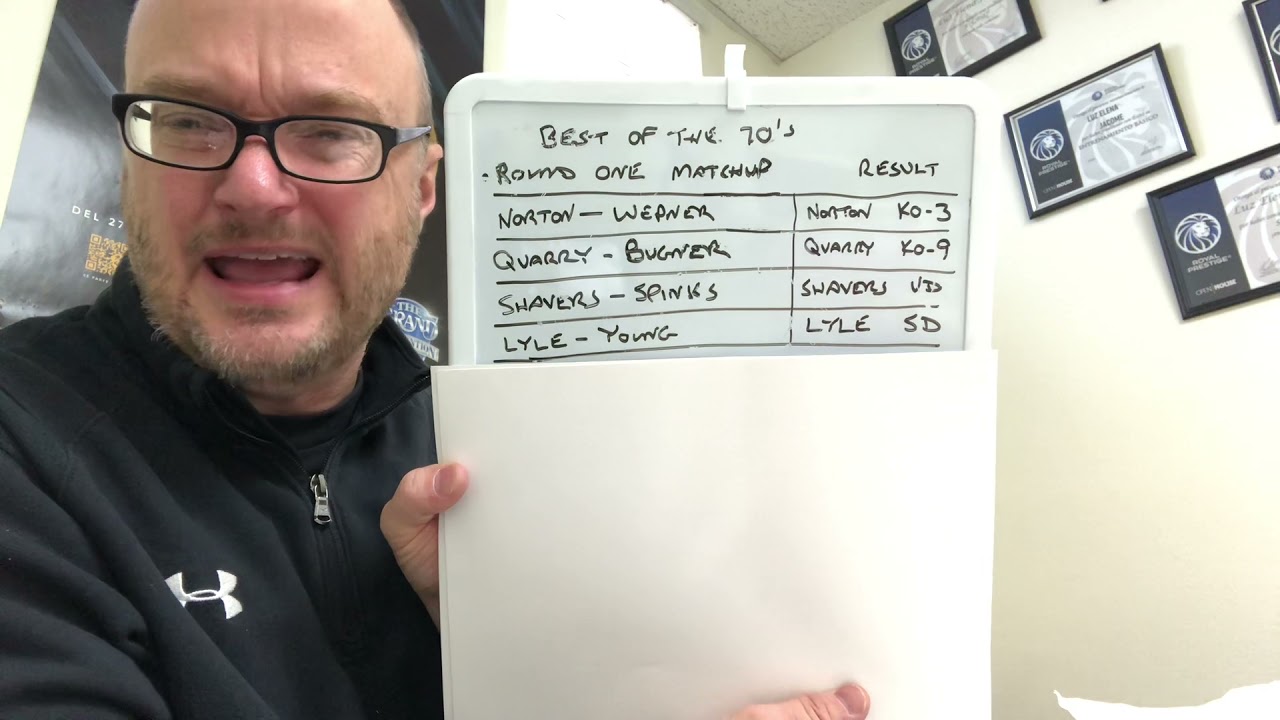 BEST OF THE 70's
ROUND ONE MATCHUP RESULT
NORTON - WEPNER NORTON KO-3
QUARRY - BUGNER QUARRY KO-9
SHAVERS - SPINKS SHAVERS UD
LYLE - YOUNG LYLE SD
DEL 27
THE
GRAND
ROYAL
PRESTIGE
LUZ ELENA
JACOME
ENTRENAMIENTO BASICO
ROYAL
PRESTIGE
OPEN HOUSE
ROYAL
PRESTIGE
OPEN HOUSE